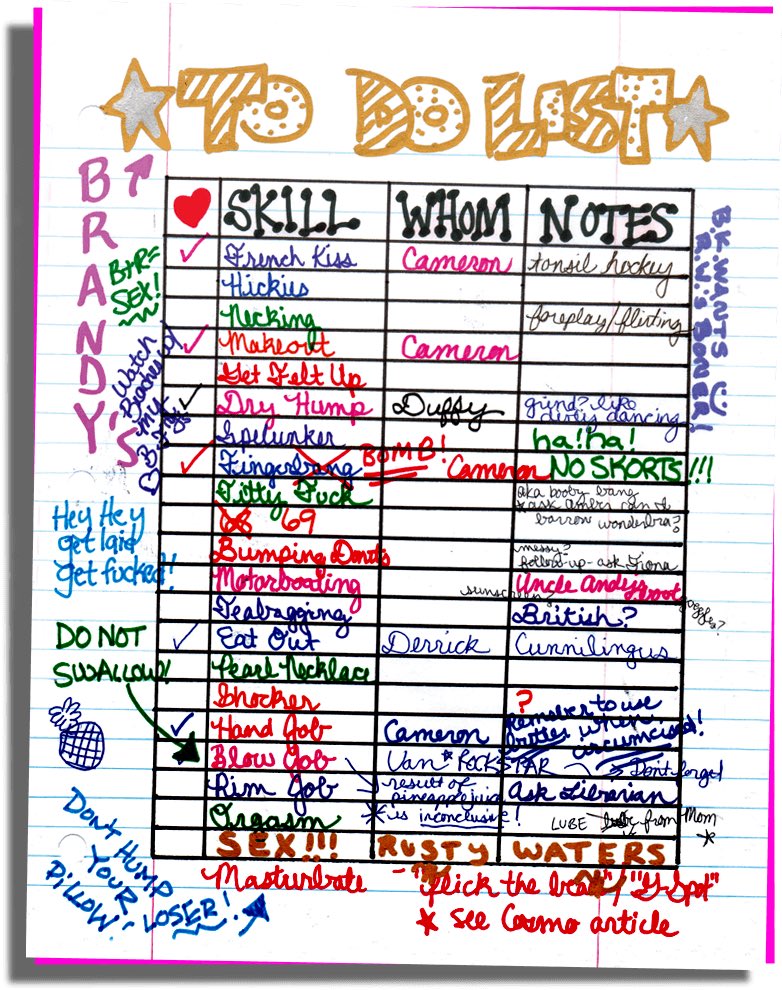 TO DO LIST
BRANDY'S
SKILL WHOM NOTES
French Kiss Cameron tonsil hockey
Hickies
Necking foreplay/flirting
Makeout Cameron
Get Felt Up
Dry Hump Duffy grind? like
dirty dancing
Spelunker ha! ha!
Fingerbang BOMB! Cameron NO SKORTS!!!
Titty Fuck aka booby bang
borrow wonderbra?
69
Bumping Donuts messy?
follow-up - ask Fiona
Motorboating sunscreen? Uncle Andy's boat goggles?
Teabagging British?
Eat Out Derrick Cunnilingus
Pearl Necklace
Shocker ?
Hand Job Cameron Remember to use
butter when
circumcised!
Blow Job Van * ROCKSTAR Don't forget
Rim Job result of
pineapple juice
* is inconclusive!
Ask Librarian
Orgasm LUBE from Mom *
SEX!!! RUSTY WATERS
Masturbate - "flick the bean"/"G-Spot"
* see Cosmo article
B+R=
SEX!
Watch
Beaches w/
my
B.F.F.s
Hey Hey
get laid
get fucked!!
DO NOT
SWALLOW!
DON'T HUMP
YOUR
PILLOW! LOSER!
B.K. WANTS
R.W.'S BONER!